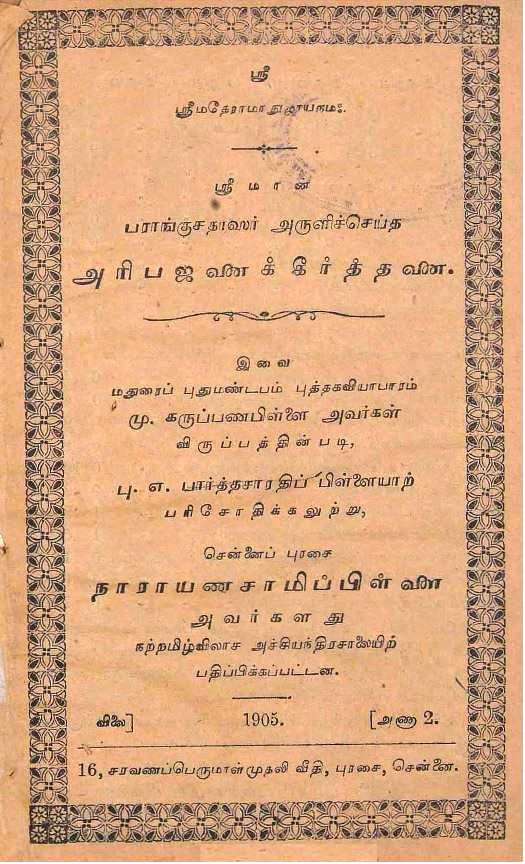 ஸ்ரீ
ஸ்ரீமதேராமாநுஜாயநமஃ.
ஸ்ரீமான்
பராங்குசதாஸர் அருளிச்செய்த
அரிபஜனைக்கீர்த்தனை.
இவை
மதுரைப் புதுமண்டபம் புத்தகவியாபாரம்
மு. கருப்பணபிள்ளை அவர்கள்
விருப்பத்தின்படி,
பு. எ. பார்த்தசாரதிப் பிள்ளையாற்
பரிசோதிக்கலுற்று,
சென்னைப் புரசை
நாராயணசாமிப்பிள்ளை
அவர்களது
நற்றமிழ்விலாச அச்சியந்திரசாலையிற்
பதிப்பிக்கப்பட்டன.
விலை] 1905. [அணா 2.
16, சரவணப்பெருமாள்முதலி வீதி, புரசை, சென்னை.